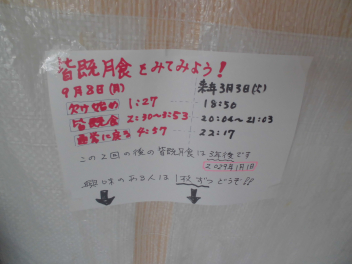 皆既月食をみてみよう!
9月8日(月) 来年3月3日(火)
欠け始め 1:27 18:50
皆既食 2:30~3:53 20:04~21:03
通常に戻る 4:57 22:17
この2回の後の皆既月食は3年後です
2029年1月1日
興味のある人は1枚ずつどうぞ!!